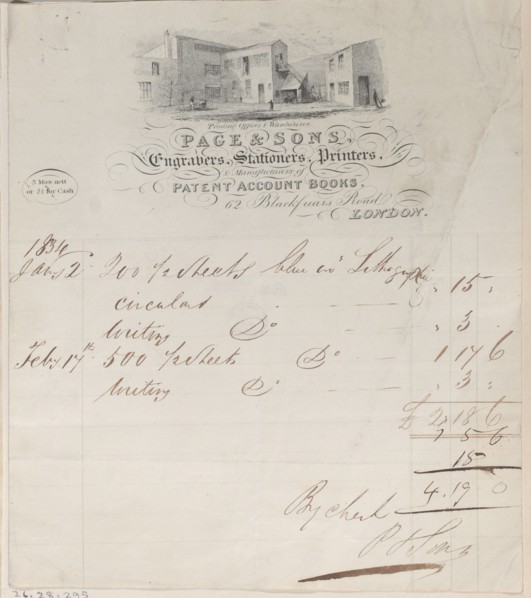 Printing Offices & Warehouses
PAGE & SONS,
Engravers, Stationers, Printers,
& Manufacturers of
PATENT ACCOUNT BOOKS,
62 Blackfriars Road
LONDON.
3 Mos nett
or 2½ for Cash
1834
Jany 2 200 ½ sheets blue Lithographic
circulars " 15 "
Writing Do " 3 "
Feby 17th 500 ½ sheets Do 1 17 6
Writing Do " 3 "
£ 2 18 6
5 6
15
4 . 19 0
By check
P & Sons
26.28.295